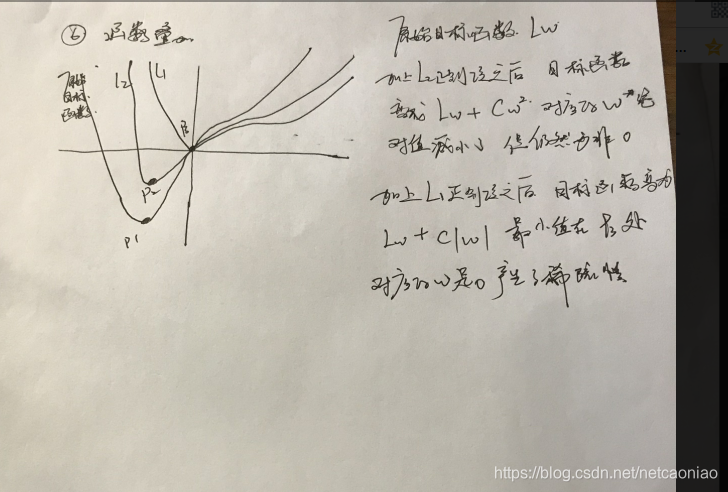 ⑥ 函数叠加
原始
目标
函数
L2
L1
P3
P2
P1
原始目标函数 Lw
加上L2正则项之后 目标函数
变成 Lw + Cw² 对应的w*绝
对值减小了 但仍然为非0
加上L1正则项之后 目标函数变为
Lw + C|w| 最小值在P3处
对应的w是0 产生了稀疏性
https://blog.csdn.net/netcaoniao